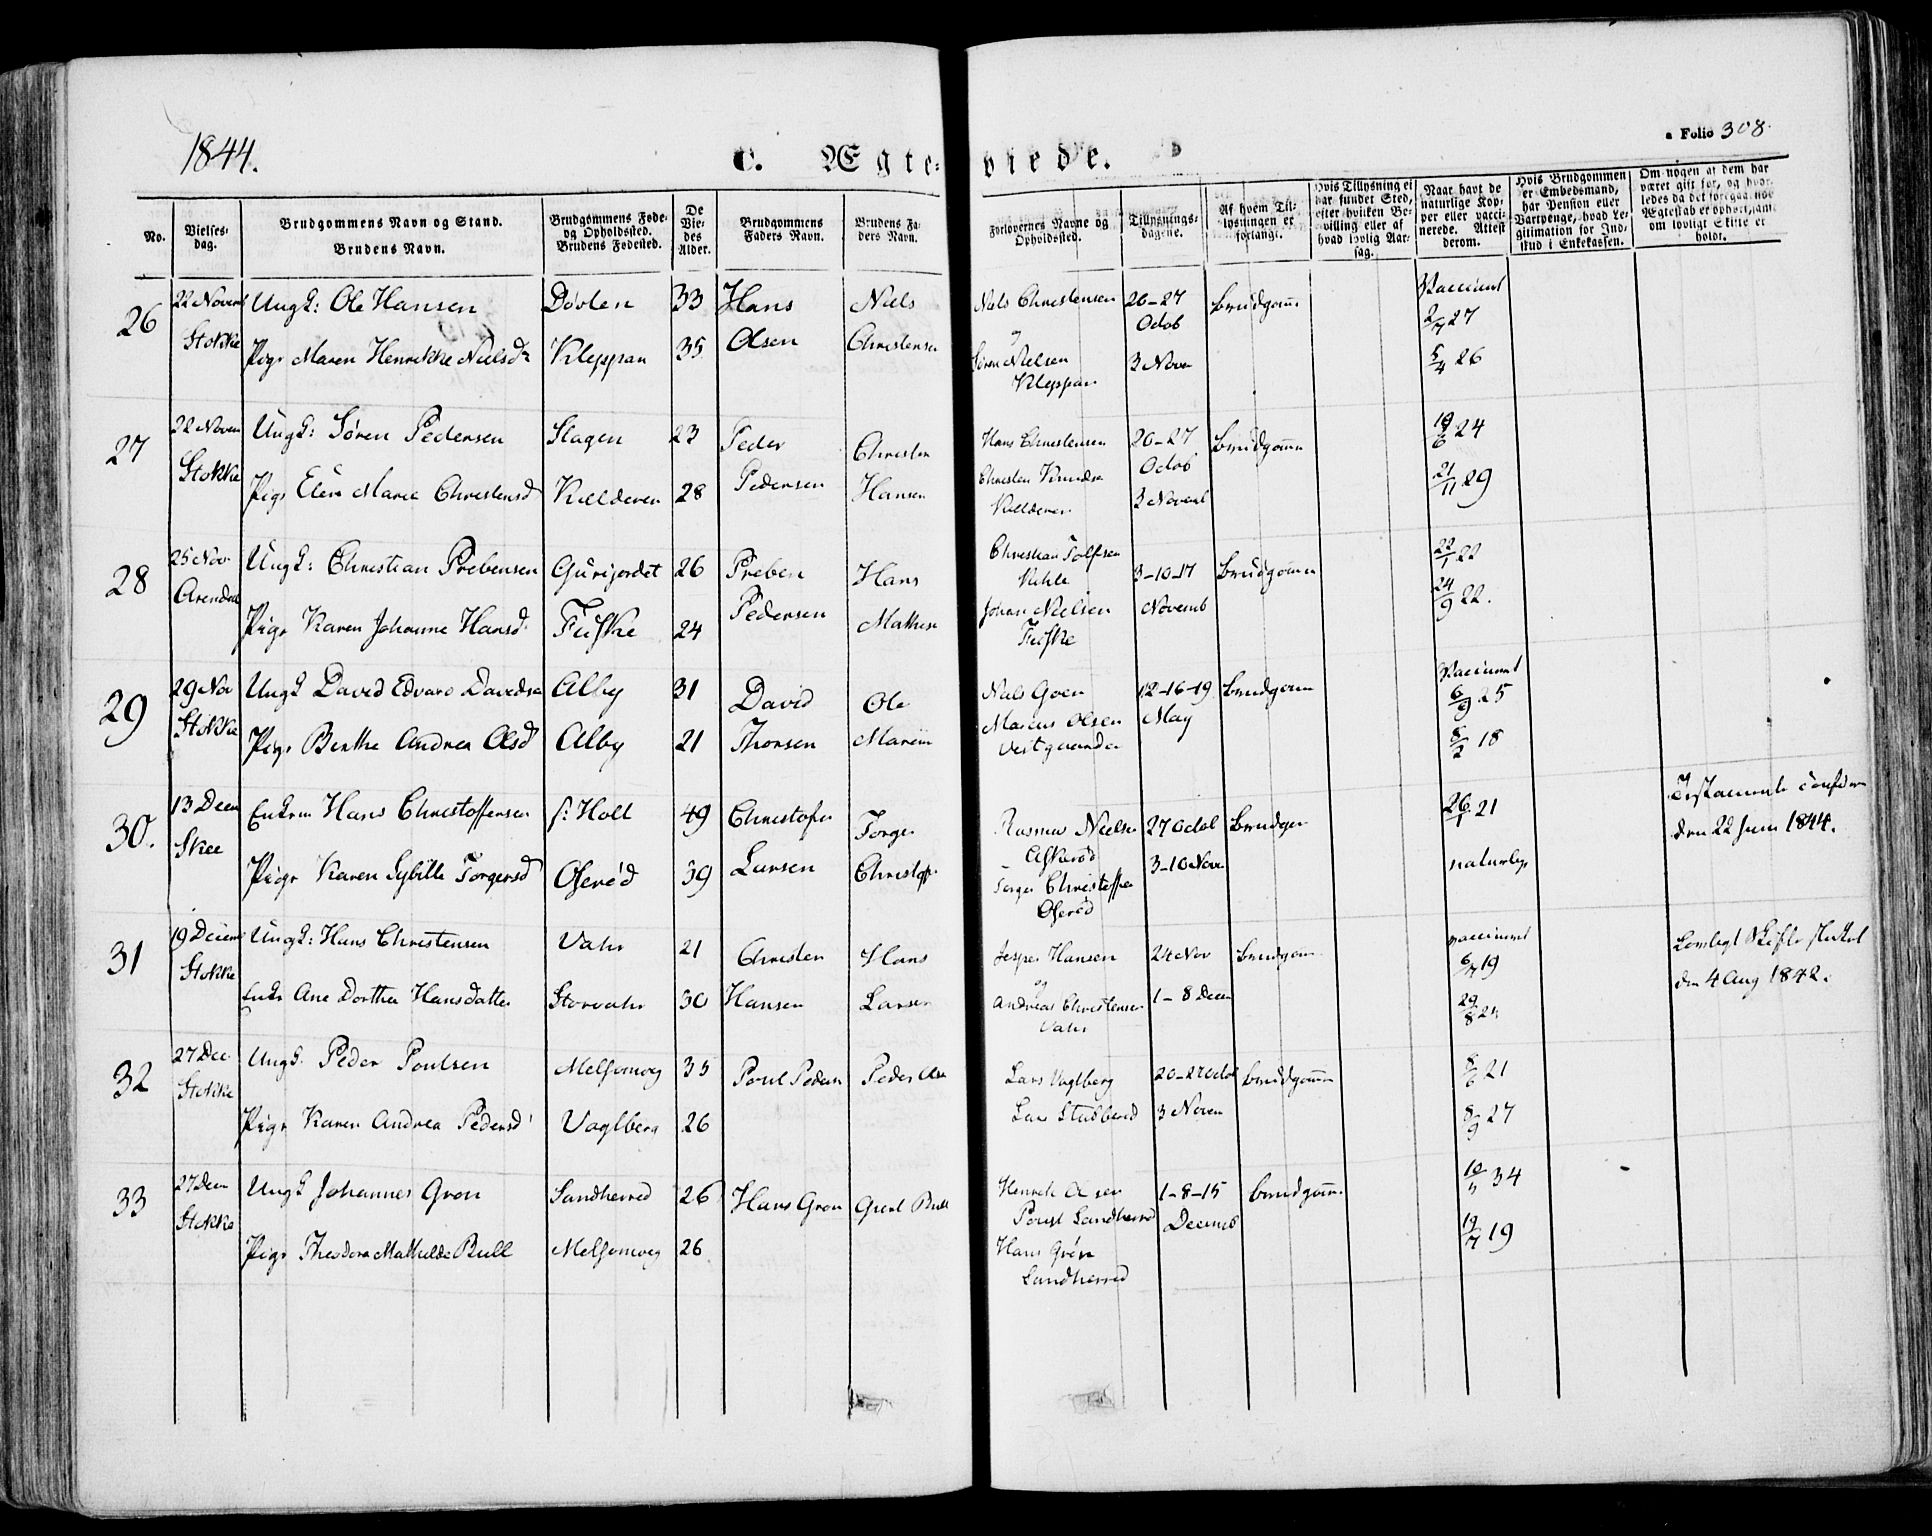 1844.
C. Ægte-
viede.
a Folio 308.
No.
Vielses-
dag.
Brudgommens Navn og Stand.
Brudens Navn.
Brudgommens Føde-
og Opholdssted.
Brudens Fødested.
De
Vie-
des
Alder.
Brudgommens
Faders Navn.
Brudens Fa-
ders Navn.
Forlovernes Navne og
Opholdssted.
Tillysnings-
dagene.
Af hvem Til-
lysningen er
forlangt.
Hvis Tillysning ei
har fundet Sted,
efter hvilken Be-
villing eller af
hvad lovlig Aar-
sag.
Naar havt de
naturlige Kop-
per eller vacci-
nerede. Attest
derom.
Hvis Brudgommen
er Embedsmand,
har Pension eller
Vartpenge, hvad Le-
gitimation for Ind-
skud i Enkekassen.
Om nogen af dem har
været gift før, og hvor-
ledes da det foregaaende
Ægteskab er ophørt, samt
om lovligt Skifte er
holdt.
26
22 Novemb
Stokke
Ungk: Ole Hansen
Døvlen
33
Hans
Olsen
Niels
Christensen
Niels Christensen
og
20-27
Octob
Brudgomm
Vaccineret
2/7 27
Pige Maren Henrikke Nielsd
Kleppan
35
Søren Nielsen
Kleppan
3 Novem
5/4 26
27
22 Novem
Stokke
Ungk: Søren Pedersen
Slagen
23
Peder
Pedersen
Christen
Hansen
Hans Christensen
20-27
Octob
Brudgomm
19/6 24
Pige Elen Marie Christensd
Killderen
28
Christen Knudsen
Killderen
3 Novemb
21/11 29
28
25 Nov
Arendal
Ungk: Christian Prebensen
Gurijordet
26
Preben
Pedersen
Hans
Mathisen
Christian Tolfsen
Kihle
3-10-17
Novemb
Brudgomm
22/1 22
Pige Karen Johanne Hansd.
Fuske
24
Johan Nielsen
Fuske
24/9 22.
29
29 Nov
Stokke
Ungk David Edvard Davidsen
Alby
31
David
Thorsen
Ole
Niels Goen
12-16-19
May
Brudgomm
Vaccineret
6/9 25
Pige Berthe Andrea Olsd
Alby
21
Marcus Olsen
8/2 18
30.
13 Decem
Skee
Enkem Hans Christoffersen
Holt
49
Christofer
Larsen
Torger
Christoffer
Rasmus Nielsen
Askerød
27 Octob
3-10 Novem
Brudgom
26/1 21
den 22 Juni 1844.
Pige Karen Sybille Torgersd
Oserød
39
Torger Christoffer
Oserød
naturlige
31
19 Decem
Stokke
Ungk: Hans Christensen
Vahr
21
Christen
Hansen
Hans
Larsen
Jesper Hansen
og
24 Nov
1-8 Decem
Brudgom
vaccineret
6/7 19
Lovligt Skifte sluttet
den 4 Aug 1842.
Enke Ane Dorthea Hansdatter
Storvahr
30
Andreas Christensen
Vahr
32
27 Dec
Stokke
Ungk. Peder Poulsen
Melsomvig
35
Poul Pedersen
Peder Olsen
Lars Vaglberg
20-27 Octob
3 Novem
Brudgomm
8/6 21
Pige Karen Andrea Pedersd
Vaglberg
26
Lars Stubberød
8/9 27
33
27 Decem
Stokke
Ungk Johannes Grøn
Sandherred
26
Hans Grøn
Giert Bull
Henrik Olsen
1-8-15
Decemb
Brudgom
10/5 34
Pige Theodora Mathilde Bull
Melsomvig
26
Hans Grøn
Sandherred
19/7 19